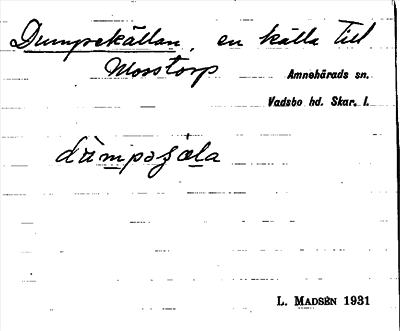 Dumpekällan, en källa till
Mosstorp
Amnehärads sn.
Vadsbo hd. Skar. l.
L. MADSÉN 1931